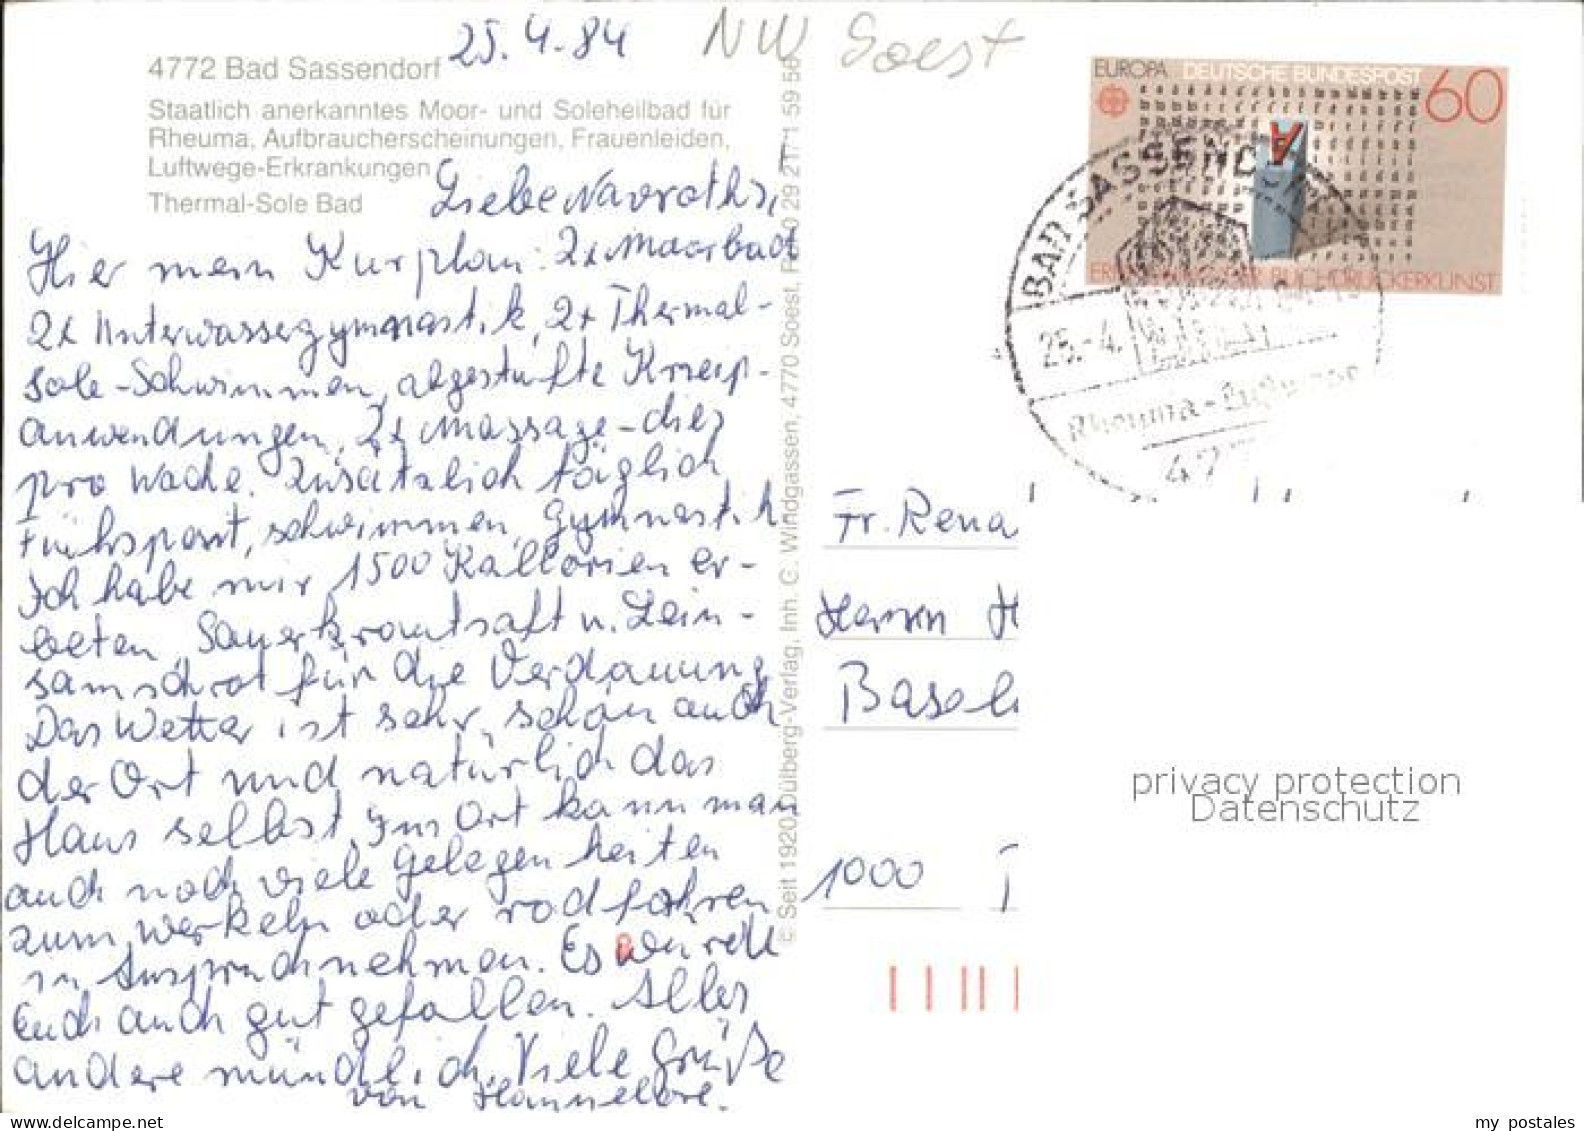 25.4.84
NW Soest
4772 Bad Sassendorf
Staatlich anerkanntes Moor- und Soleheilbad für
Rheuma, Aufbraucherscheinungen, Frauenleiden,
Luftwege-Erkrankungen
Thermal-Sole Bad
Liebe Navroths,
Hier mein Kurplan: 2x Moorbad
2x Unterwassergymnastik, 2x Thermal-
sole-Schwimmen, abgestufte Kneip-
anwendungen, 2x Massage - dies
pro Woche. Zusätzlich täglich
Frühsport, schwimmen, Gymnastik
Ich habe mir 1500 Kallorien er-
beten, Sauerkrautsaft u. Lein-
samschrot für die Verdauung
Das Wetter ist sehr schön auch
der Ort und natürlich das
Haus selbst. Im Ort kann man
auch noch viele Gelegenheiten
zum werkeln oder radfahren
in Anspruch nehmen. Es würde
Euch auch gut gefallen. Alles
andere mündlich. Viele Grüße
von Hannelore.
© Seit 1920 Dülberg-Verlag, Inh. G. Windgassen, 4770 Soest,
EUROPA DEUTSCHE BUNDESPOST 60
BUCHDRUCKERKUNST
BAD SASSENDORF
25.-4.
Rheuma-
477
Fr. Rena
Herrn H
Basel
1000
privacy protection
Datenschutz
my postales